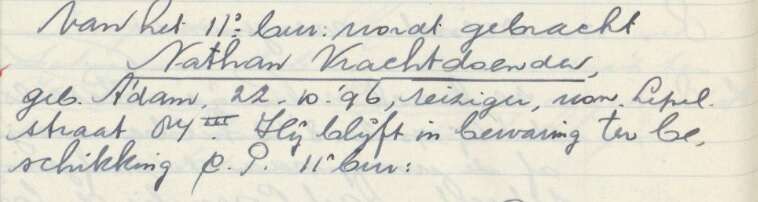 Van het 11e bur: wordt gebracht
Nathan Krachtdoender,
geb. A'dam, 22-10-'96, reiziger, won. Lepel-
straat 84 III. Hij blijft in bewaring ter be-
schikking C.P. 11e bur: